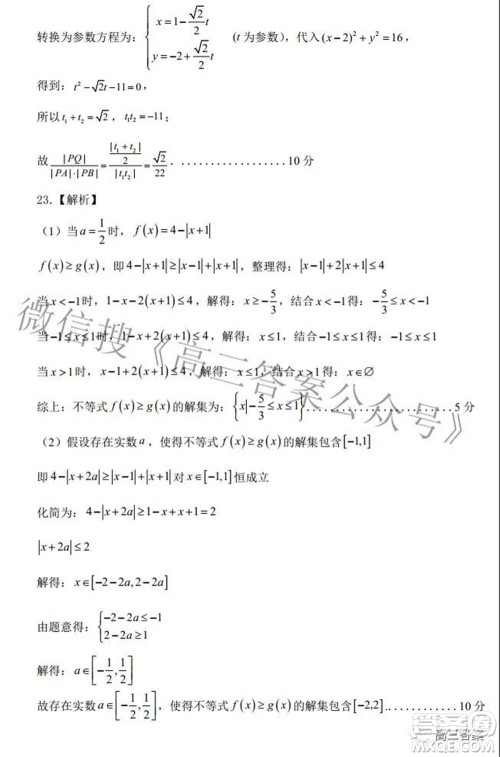 转换为参数方程为：{x=1-√2/2 t, y=-2+√2/2 t (t 为参数)，代入 (x-2)²+y²=16，
得到：t²-√2t-11=0，
所以 t₁+t₂=√2，t₁t₂=-11；
故 |PQ|/(|PA|·|PB|)=(|t₁+t₂|/2)/|t₁t₂|=√2/22. ..................10 分
23.【解析】
（1）当 a=1/2 时，f(x)=4-|x+1|
f(x)≥g(x)，即 4-|x+1|≥|x-1|+|x+1|，整理得：|x-1|+2|x+1|≤4
当 x<-1 时，1-x-2(x+1)≤4，解得：x≥-5/3，结合 x<-1 得：-5/3≤x<-1
当 -1≤x≤1 时，1-x+2(x+1)≤4，解得：x≤1，结合 -1≤x≤1 得：-1≤x≤1
当 x>1 时，x-1+2(x+1)≤4，解得：x≤1，结合 x>1 得：x∈∅
综上：不等式 f(x)≥g(x) 的解集为：{x|-5/3≤x≤1}..................5 分
（2）假设存在实数 a，使得不等式 f(x)≥g(x) 的解集包含 [-1,1]
即 4-|x+2a|≥|x-1|+|x+1| 对 x∈[-1,1] 恒成立
化简为：4-|x+2a|≥1-x+x+1=2
|x+2a|≤2
解得：x∈[-2-2a,2-2a]
由题意得：{-2-2a≤-1, 2-2a≥1
解得：a∈[-1/2,1/2]
故存在实数 a∈[-1/2,1/2]，使得不等式 f(x)≥g(x) 的解集包含 [-2,2]..............10 分
微信搜《高三答案公众号》
高三答案